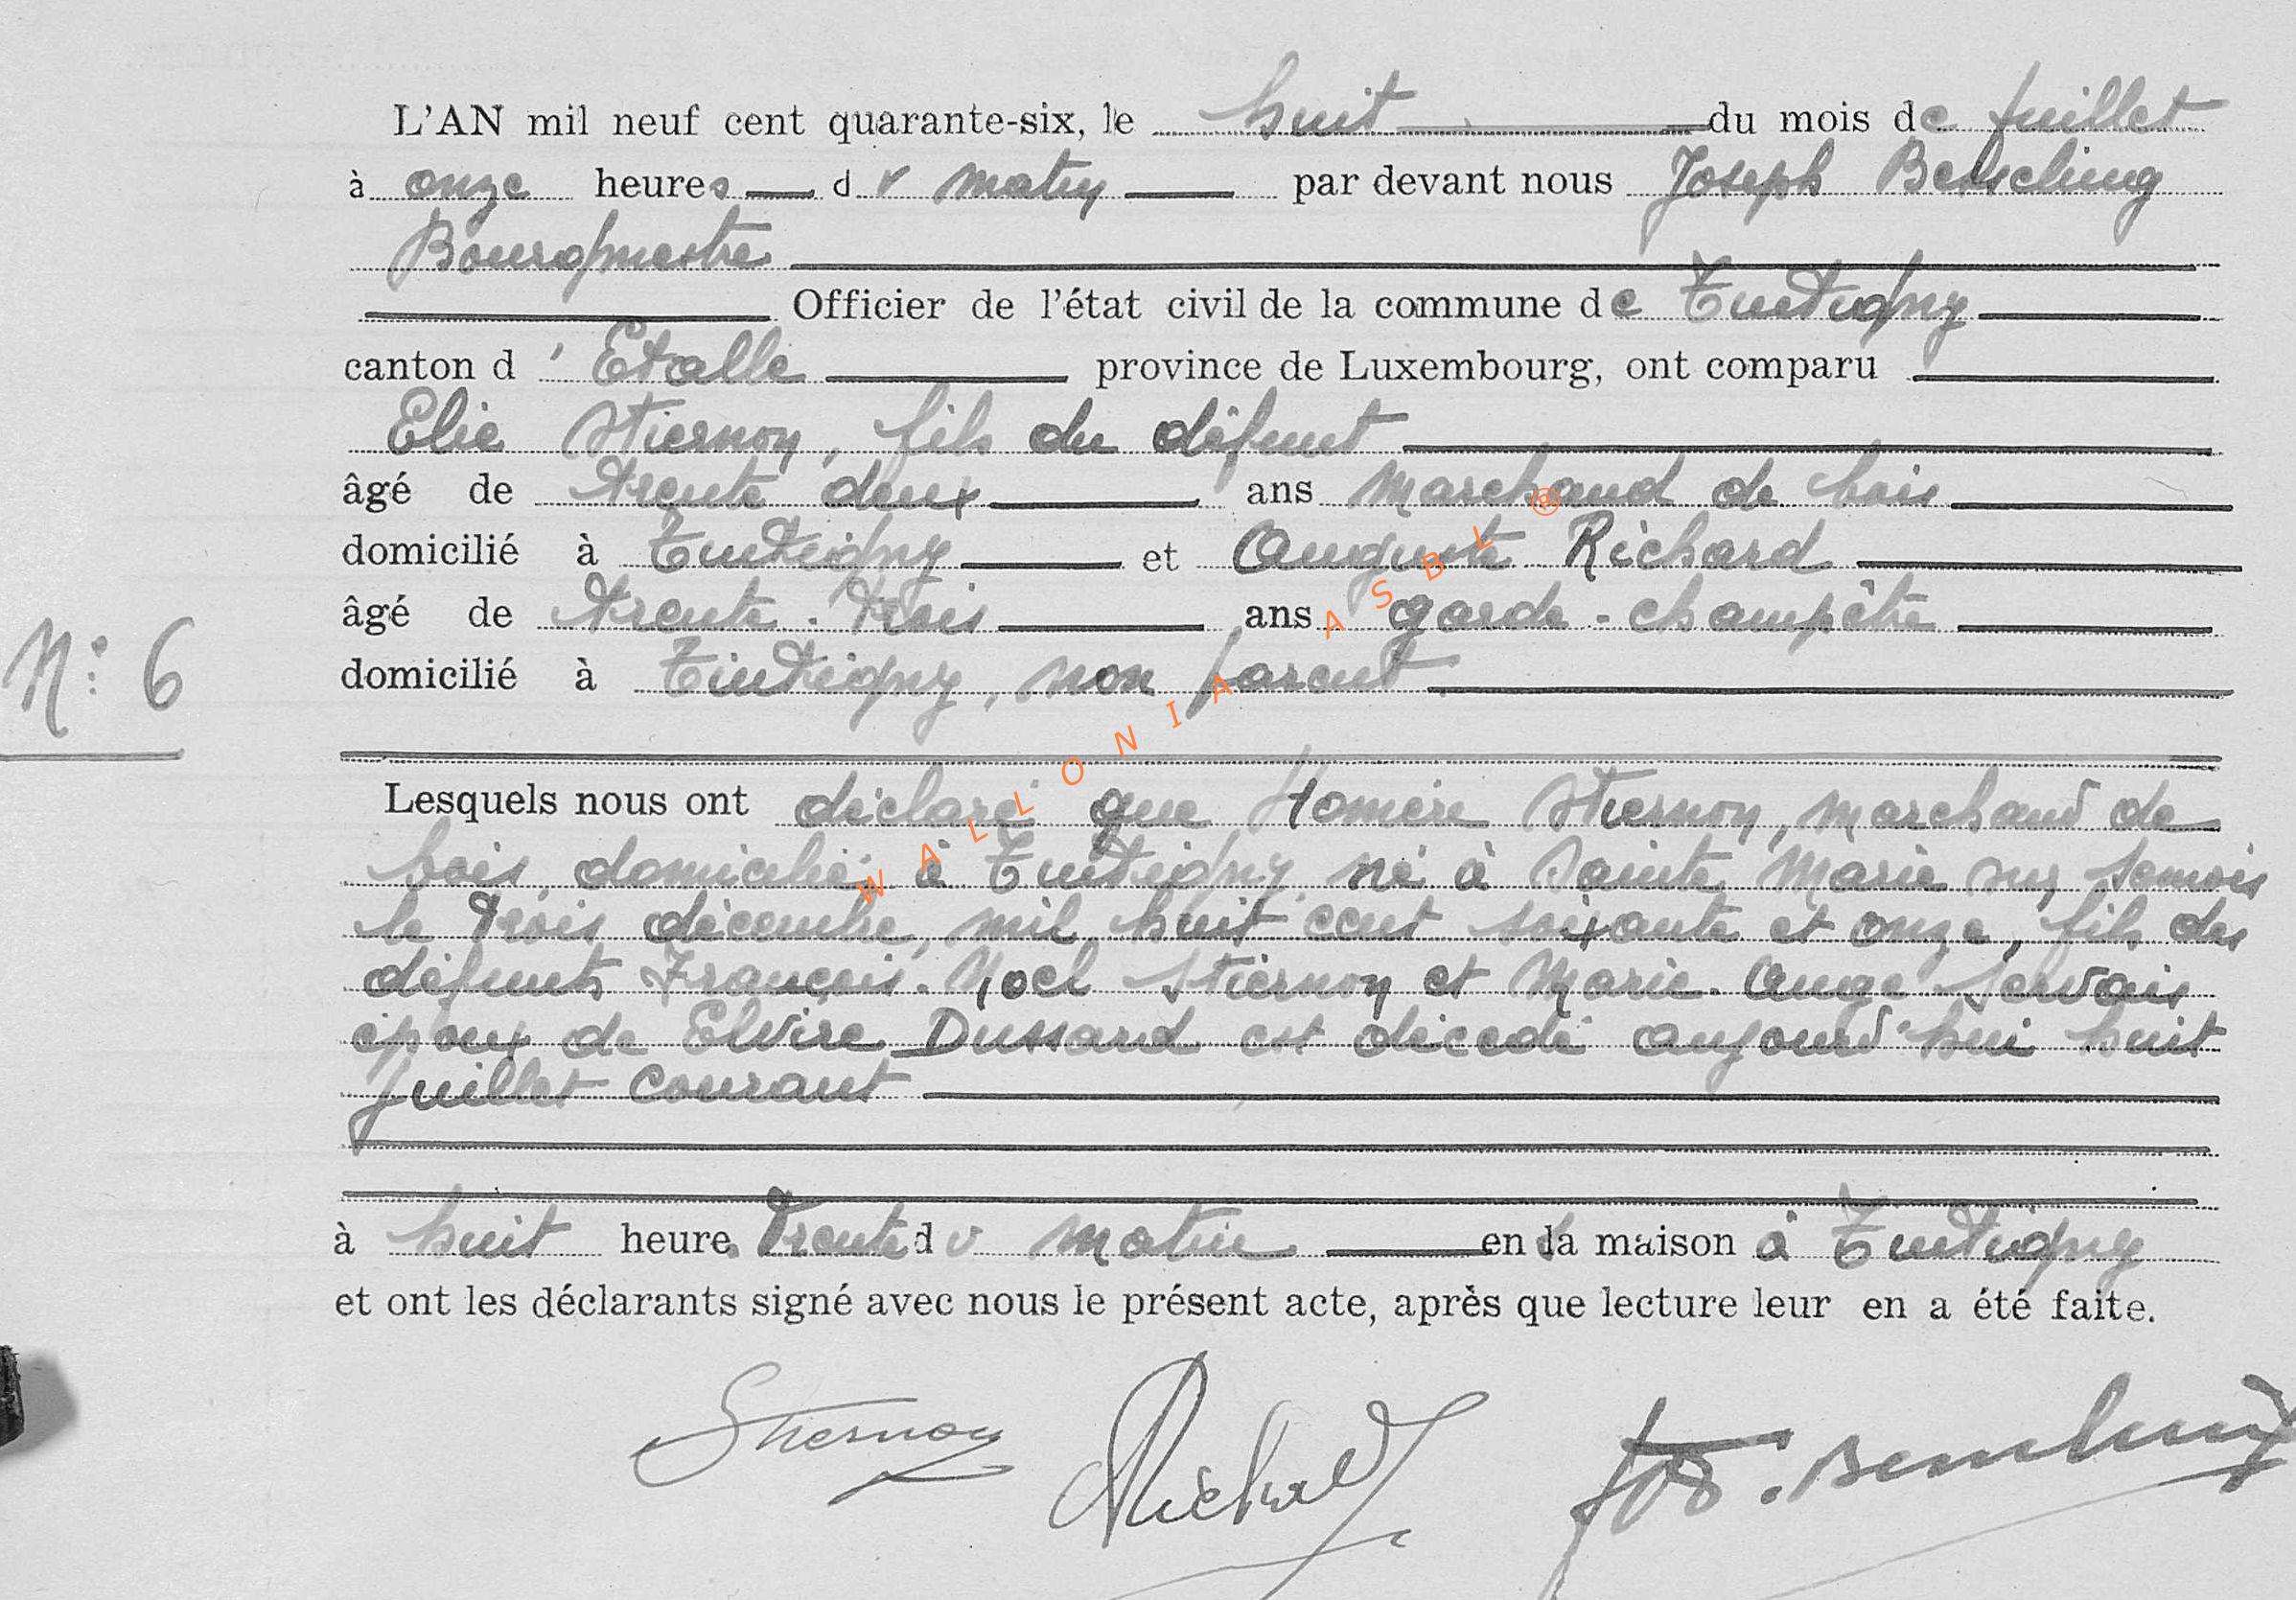 L'AN mil neuf cent quarante-six, le huit du mois de juillet
à onze heures du matin par devant nous Joseph
Bourgmestre
Officier de l'état civil de la commune de Tintigny
canton d'Etalle province de Luxembourg, ont comparu
Elie Stiernon, fils du défunt
âgé de trente deux ans marchand de bois
domicilié à Tintigny et Auguste Richard
âgé de trente-trois ans garde-champêtre
N° 6
domicilié à Tintigny, non parent
Lesquels nous ont déclaré que Homère Stiernon, marchand de
bois, domicilié à Tintigny, né à Sainte Marie sur Semois
le trois décembre, mil huit cent soixante et onze, fils des
défunts François-Noël Stiernon et Marie-Ange Servais
époux de Elvire Dussard est décédé aujourd'hui huit
juillet courant
à huit heures trente du matin en sa maison à Tintigny
et ont les déclarants signé avec nous le présent acte, après que lecture leur en a été faite.
Stiernon Richard
WALLONIA ASBL ®